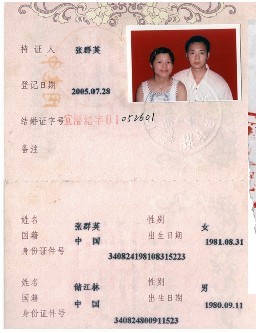 持证人 张群英
登记日期 2005.07.28
结婚证字号 宜潜结字01 052601
备注
姓名 张群英 性别 女
国籍 中国 出生日期 1981.08.31
身份证件号 340824198108315223
姓名 储江林 性别 男
国籍 中国 出生日期 1980.09.11
身份证件号 340824800911523